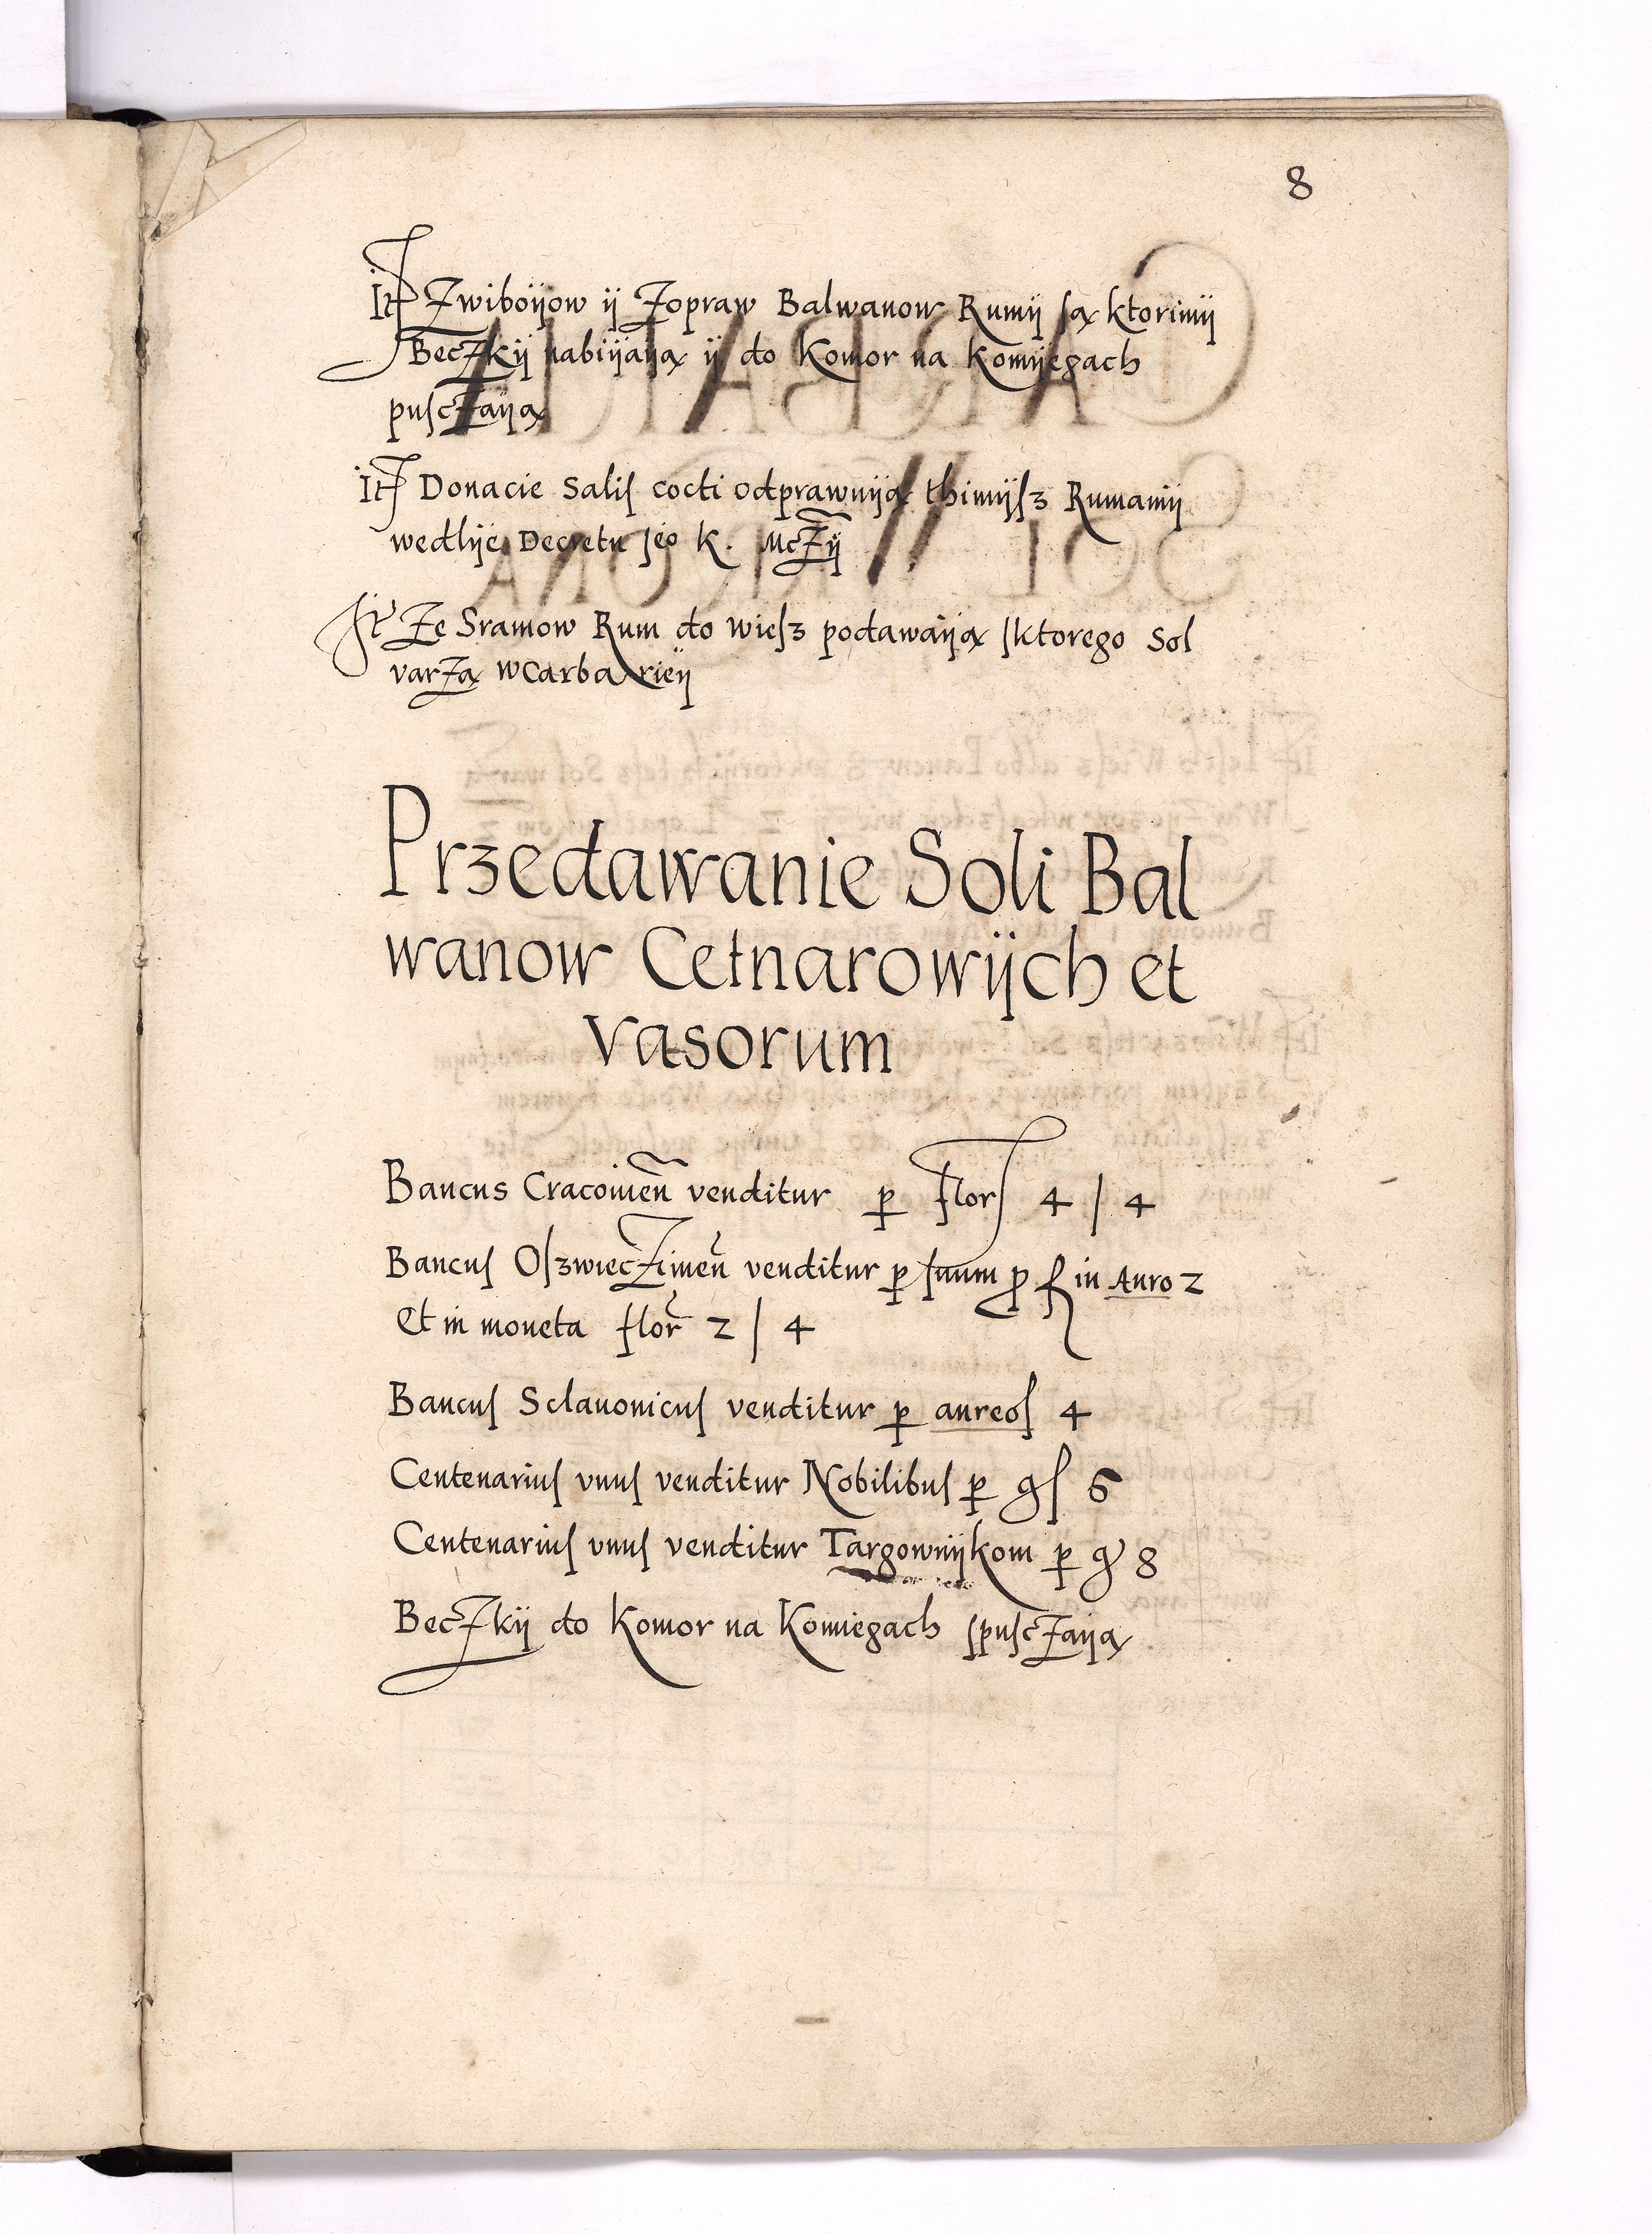 8
It Zwiboÿow ÿ Zopraw Balwanow Rumÿ są ktorimÿ
Beczkÿ nabiÿaÿą ÿ do Komor na Komÿegach
pusczaÿą
It Donacie Salis cocti odprawuÿą thimÿsz Rumamÿ
wedlÿe Decretu jeo K. Mczÿ
It Ze Sramow Rum do wiesz podawaÿą sktorego Sol
varzą wCarbarieÿ
Przedawanie Soli Bal
wanow Cetnarowÿch et
vasorum
Bancus Cracouien̄ venditur p flor 4 / 4
Bancus Oszwieczimen̄ venditur p in Auro 2
Et in moneta flor 2 / 4
Bancus Sclauonicus venditur p aureos 4
Centenarius vnus venditur Nobilibus p gs 6
Centenarius vnus venditur Targownÿkom p g 8
Beczkÿ do Komor na Komiegach spusczaÿą